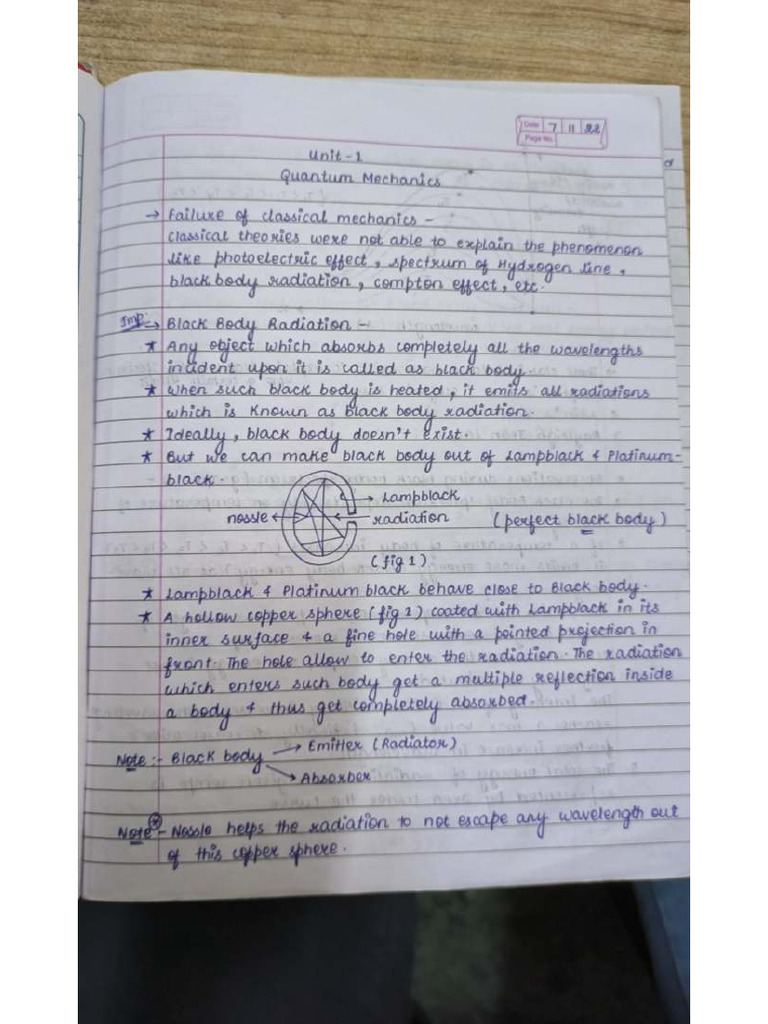 Date 7 11 22
Page No.
Unit-1
Quantum Mechanics
→ Failure of classical mechanics -
classical theories were not able to explain the phenomenon
like photoelectric effect, spectrum of Hydrogen line,
black body radiation, compton effect, etc.
Imp. → Black Body Radiation -
★ Any object which absorbs completely all the wavelengths
incident upon it is called as black body.
★ When such black body is heated, it emits all radiations
which is known as Black body radiation.
★ Ideally, black body doesn't exist.
★ But we can make black body out of Lampblack & Platinum-
black.
→ Lampblack
nossle ← → radiation (perfect black body)
(fig 1)
★ Lampblack & Platinum black behave close to Black body.
★ A hollow copper sphere (fig 1) coated with Lampblack in its
inner surface & a fine hole with a pointed projection in
front. The hole allow to enter the radiation. The radiation
which enters such body get a multiple reflection inside
a body & thus get completely absorbed.
Note :- Black body → Emitter (Radiator)
→ Absorber
Note - Nossle helps the radiation to not escape any wavelength out
of this copper sphere.